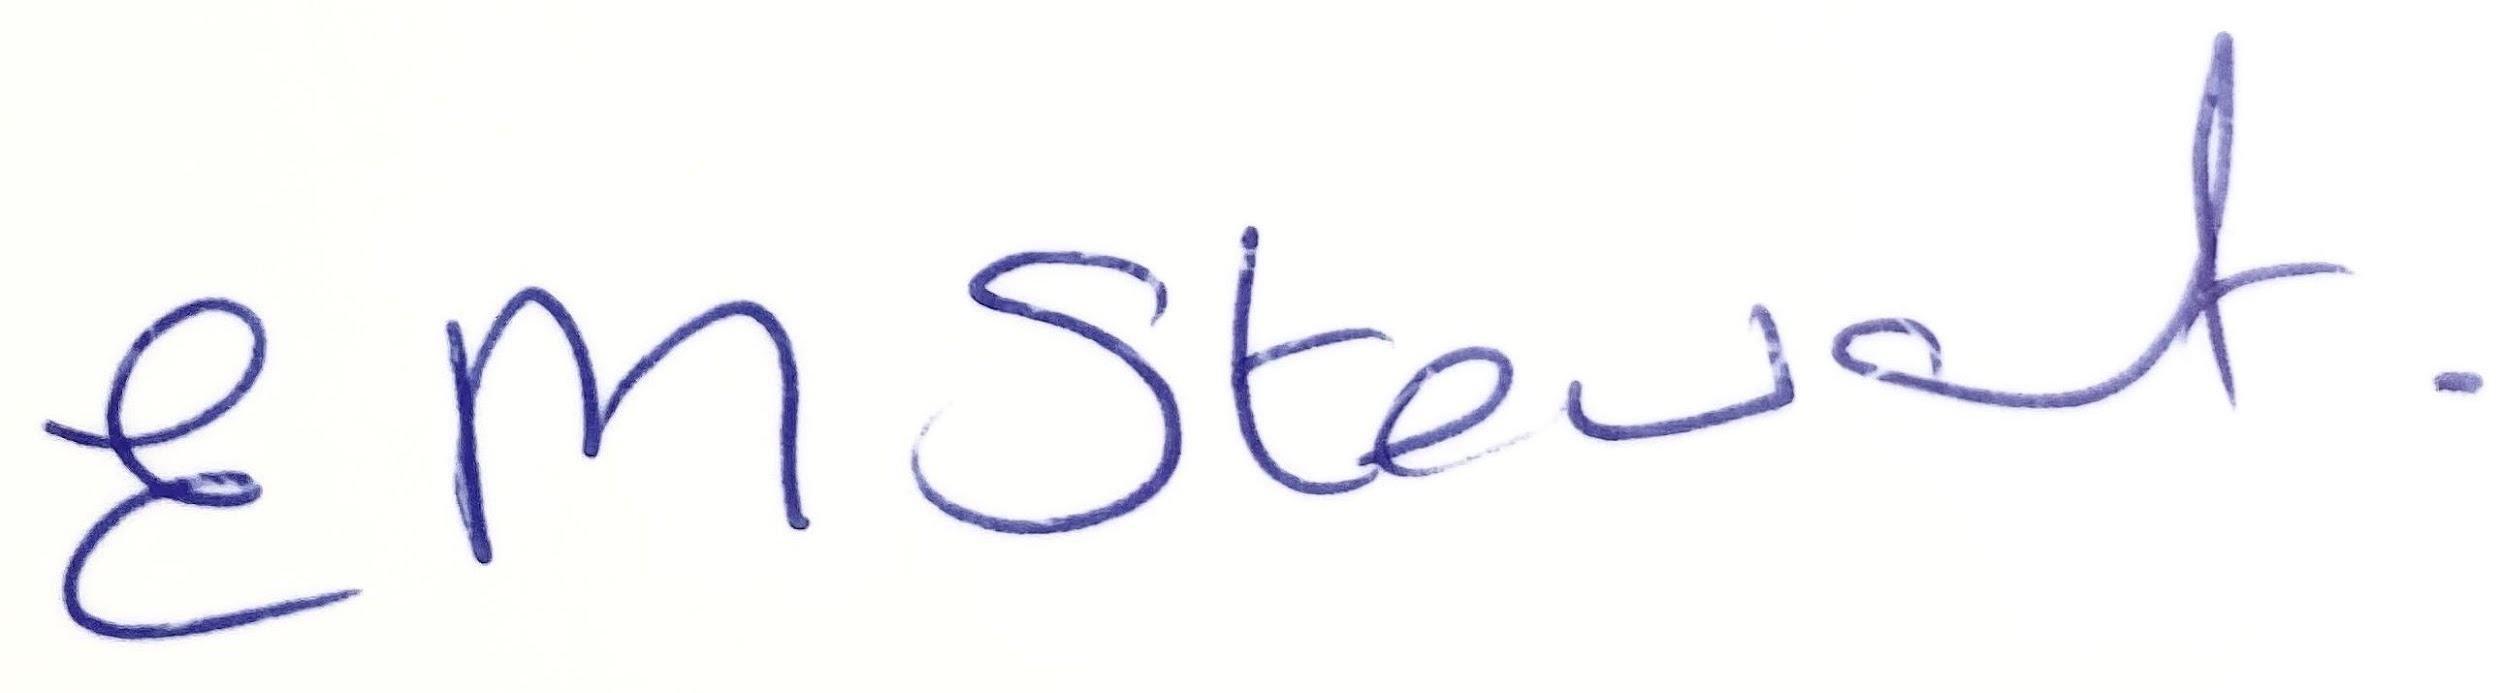 E M Stewart.